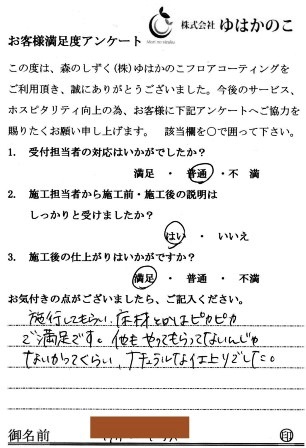 株式会社 ゆはかのこ
お客様満足度アンケート
この度は、森のしずく(株)ゆはかのこフロアコーティングを
ご利用頂き、誠にありがとうございました。今後のサービス、
ホスピタリティ向上の為、お客様に下記アンケートへご協力を
賜りたくお願い申し上げます。 該当欄を○で囲って下さい。
1. 受付担当者の対応はいかがでしたか？
満足 ・ 普通 ・ 不満
2. 施工担当者から施工前・施工後の説明は
しっかりと受けましたか？
はい ・ いいえ
3. 施工後の仕上がりはいかがですか？
満足 ・ 普通 ・ 不満
お気付きの点がございましたら、ご記入ください。
施行してもらい、床材とかはピカピカ
で満足です。他もやってもらってないんじゃ
ないかってくらい、ナチュラルな仕上りでした。
御名前
印